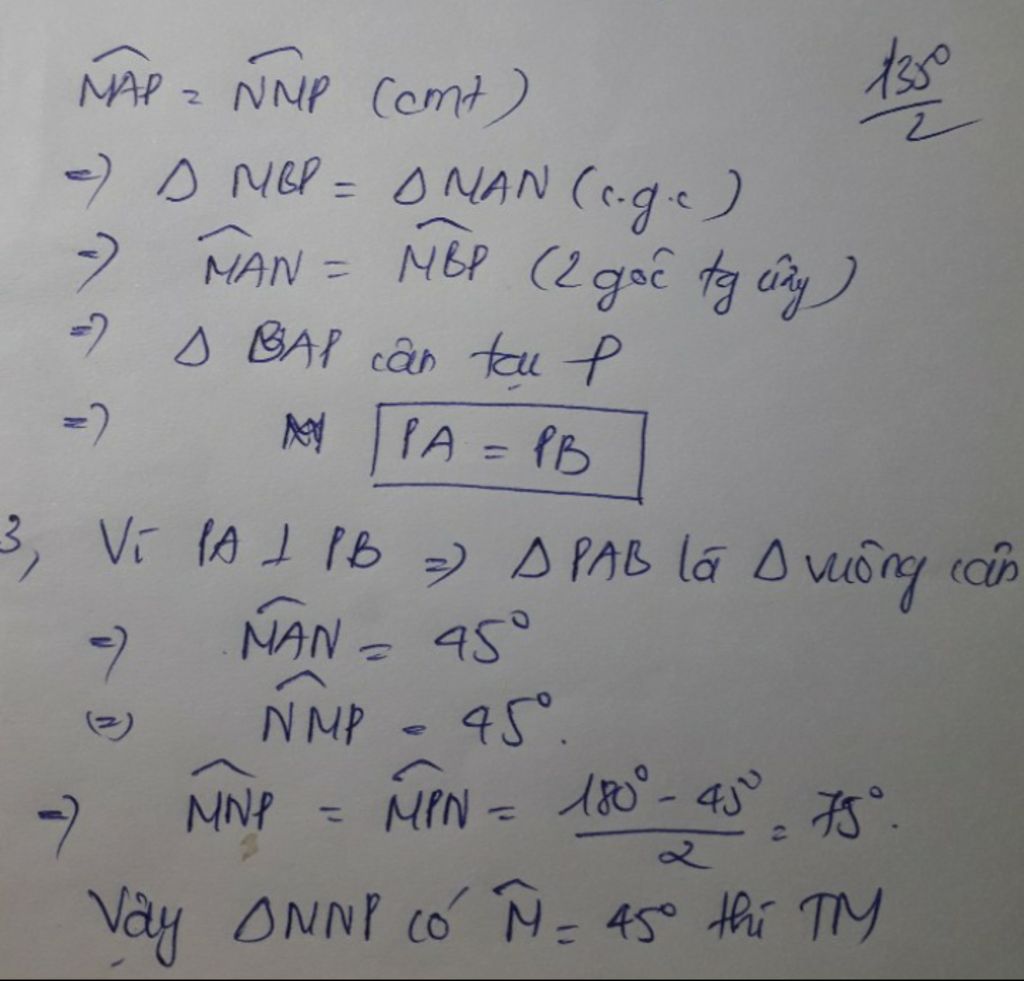 135°
2
MAP = NMP (cmt)
=> Δ MBP = Δ MAN (c.g.c)
=> MAN = MBP (2 góc tg ứng)
=> Δ BAP cân tại P
=> PA = PB
3, Vì PA ⊥ PB => Δ PAB là Δ vuông cân
=> MAN = 45°
(=) NMP = 45°.
=> MNP = MPN = (180° - 45°)/2 = 75°.
Vậy ΔMNP có M = 45° thì TM